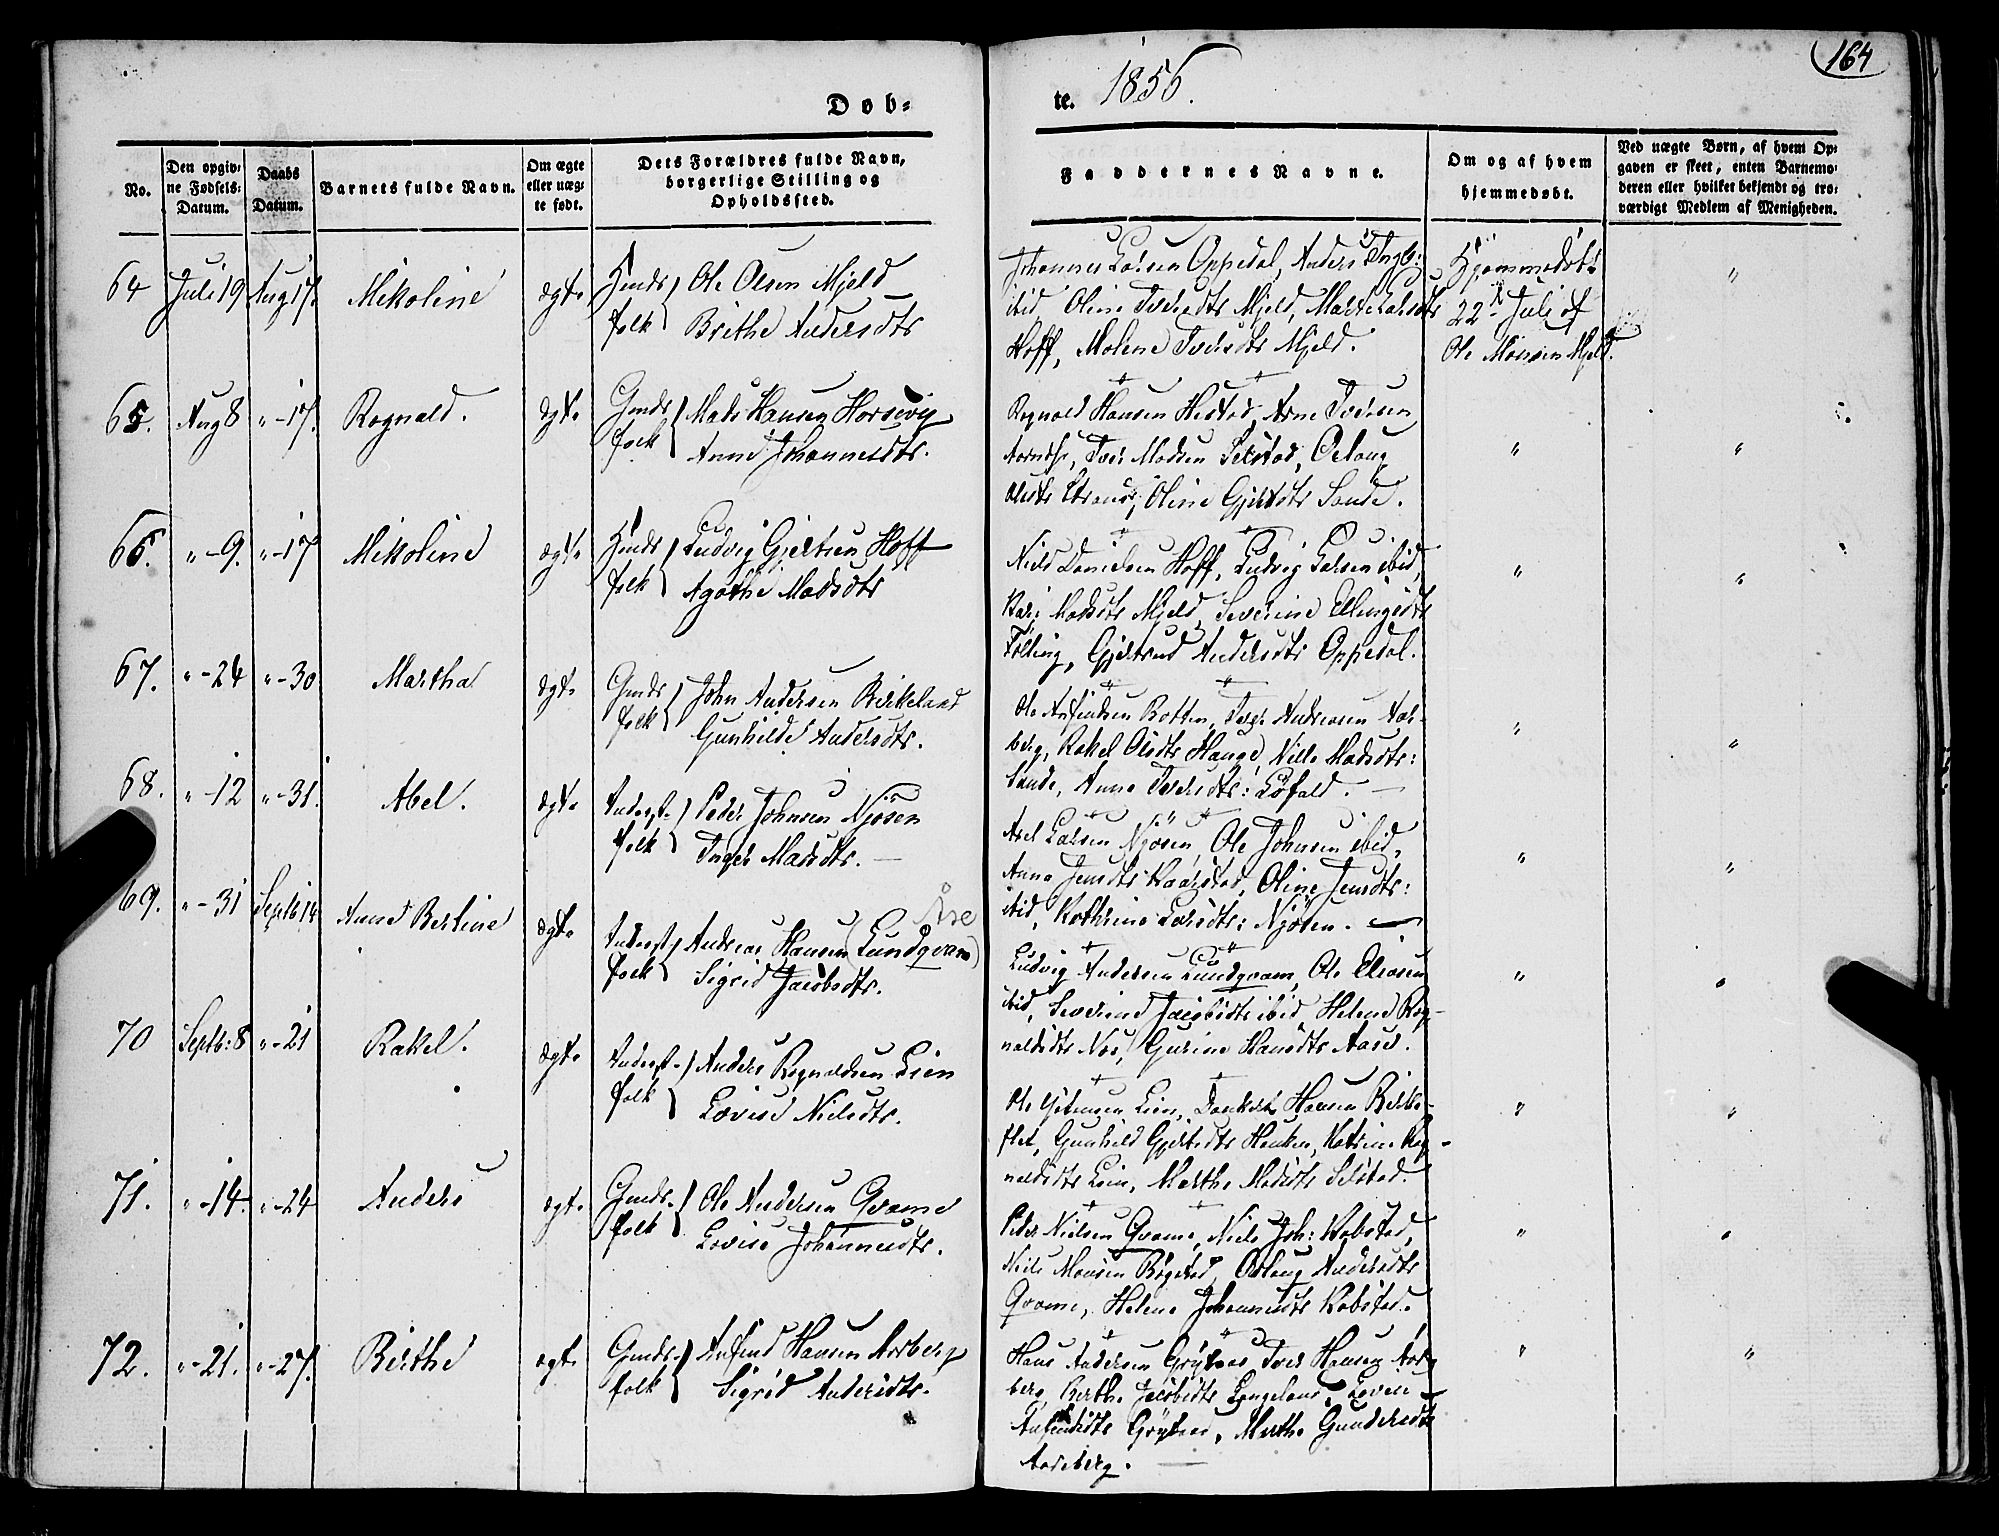 164
Døb-
te. 1856.
No.
Den opgiv-
ne Fødsels-
Datum.
Daabs
Datum.
Barnets fulde Navn.
Om ægte
eller uæg-
te født.
Dets Forældres fulde Navn,
borgerlige Stilling og
Opholdssted.
Faddernes Navne.
Om og af hvem
hjemmedøbt.
Ved uægte Børn, af hvem Op-
gaven er skeet, enten Barnemo-
deren eller hvilket bekjendt og tro-
værdigt Medlem af Menigheden.
64 Juli 19 Aug 17. Mikoline ægte
folk
Ole Olsen Mjeld
Brithe Andersdtr
Johannes Larsen Oppedal, Anders
ibid, Oline Iversdtr Mjeld, Marte Larsdtr
Hoff, Malene Iversdtr Mjeld.
Hjemmedøbt
22de Juli af
Ole Monsen Mjeld.
"
65. Aug 8 "-17. Ragnald. ægte
Gmds
folk
Mads Hansen Horsevig
Anne Johannesdtr.
Ragnald Hansen Hestad, Arne Iversen
Iver Madsen Selstad, Oslaug
Oline Gjertsdtr Sande.
"
"
66. "-9. "-17 Mikoline ægte
folk
Ludvig Gjertsen Hoff
Agathe Madsdtr
Niels Danielsen Hoff, Ludvig Larsen ibid,
Kari Madsdtr Mjeld, Severine Ellingsdtr
Gjertrud Andersdtr Oppedal.
"
"
67. "-24 "-30 Martha ægte
Gmds
folk
John Andersen Birkeland
Gunhilde Andersdtr.
Ole Anfindsen Botten, Andreasen Aar-
berg, Rakel Olsdtr Hauge, Nille Madsdtr:
Sande, Anne Iversdtr: Løfald.
"
"
68. "-12 "-31. Abel. ægte
Inderst-
folk
Peder Johnsen Njøsen
Inger Madsdtr.
Axel Larsen Njøsen, Ole Johnsen ibid,
Anna Jensdtr Kaarstad, Oline Jensdtr:
ibid, Kathrine Larsdtr: Njøsen.
"
"
69. "-31 Septb 14 Anne Bertine ægte
Åse
Inderst
folk
Andreas Hansen (Lundqvam)
Sigrid Jacobsdtr.
Ludvig Andersen Lundqvam, Ole Eliasen
ibid, Severine Jacobsdtr ibid, Helene Rag-
naldsdtr Nes, Gurine Hansdtr Aase.
"
"
70 Septb: 8 "-21 Rakel. ægte
Inderst-
folk
Anders Ragnaldsen Lien
Lovise Nielsdtr.
Ole Lien, Dankert Hansen Birke-
flet, Gunhild Gjertsdtr Hauken, Katrine Rag-
naldsdtr Lien, Marthe Madsdtr Selstad.
"
"
71. "-14. "-24 Anders ægte
Gmds-
folk
Ole Andersen Qvame
Lovise Johannesdtr.
Peder Nielsen Qvame, Niels Joh: Kobstad,
Niels Monsen Bøgstad, Oslaug Andersdtr
Qvame, Helene Johannesdtr Kobstad.
"
"
72. "-21. "-27. Birthe ægte
Gmds-
folk
Anfind Hansen Aarberg
Sigrid Andersdtr.
Hans Andersen Grytnes, Iver Hansen Aar-
berg, Berthe Jacobsdtr Lovise
Anfindsdtr Grytnes, Marthe Gundersdtr
Aarberg.
"
"